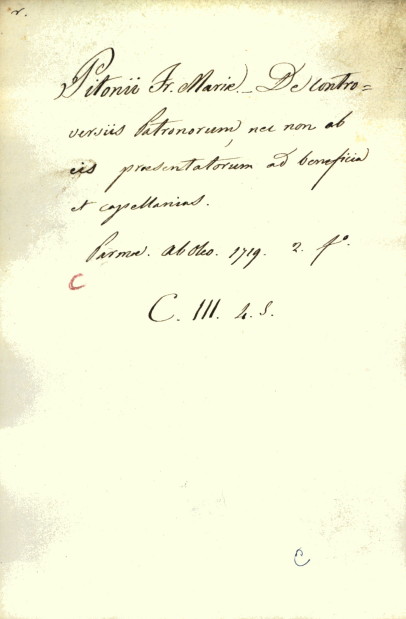 r.
Pitonii Fr. Mariæ._ De contro=
versiis Patronorum, nec non ab
eis præsentatorum ad beneficia
et capellanias.
Parmæ. 1719. 2. fº.
C
C. III. 4. 5.
C